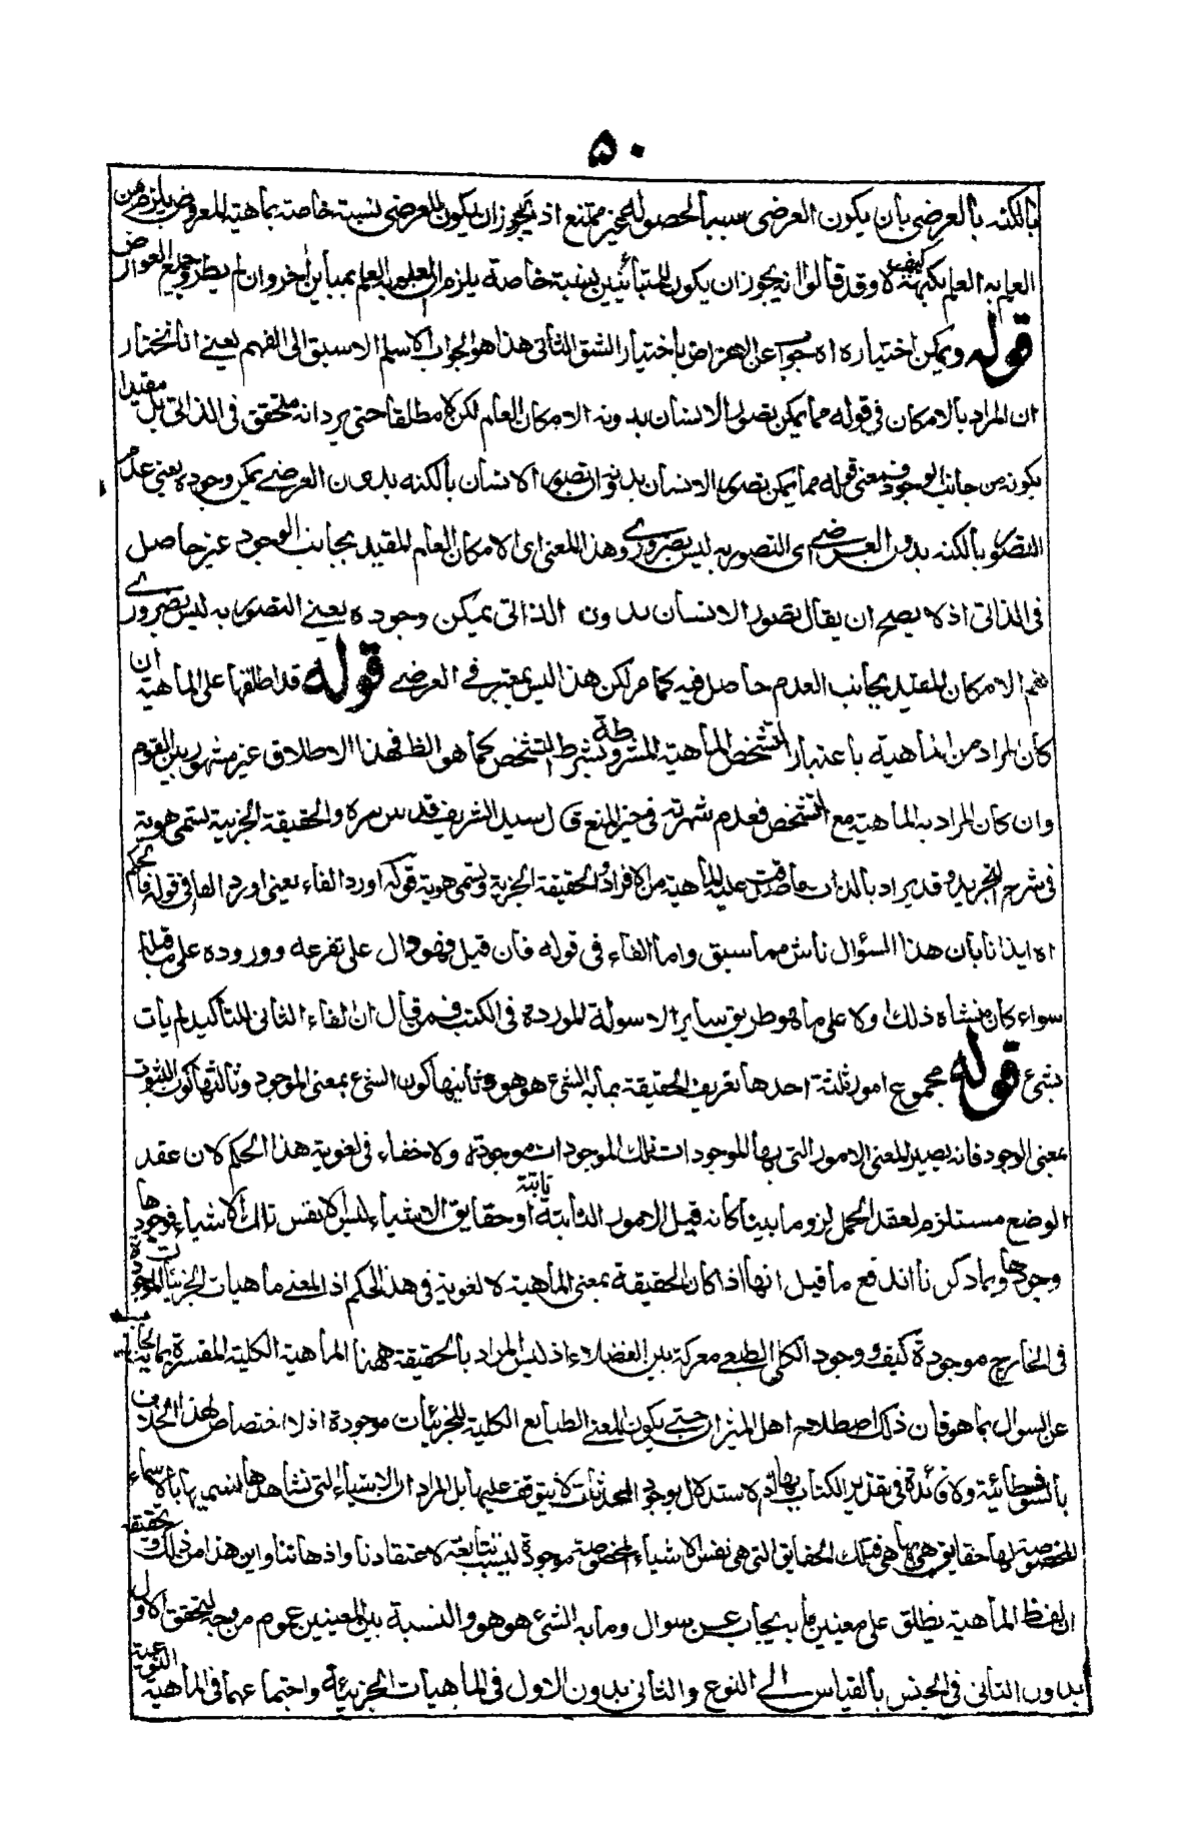 ۵۰
بالكنه بالعرضي بأن يكون العرضي سببا لحصوله غير ممتنع اذ يجوز ان يكون للعرضي نسبة خاصة بماهية المعروض يلزم من
العلم به العلم بكنهه كيف لا وقد قالوا انه يجوز ان يكون للمتبائنين نسبة خاصة يلزم العلم بمباين اخر وان لم يطرد جميع العوارض
قوله ويمكن اختياره اه جواب عن الاعتراض باختيار الشق الثاني هذا هو الجواب الاسلم الاسبق الى الفهم يعني انا نختار
ان المراد بالامكان في قوله مما يمكن تصور الانسان بدونه الامكان العام لكن لا مطلقا حتى يرد انه متحقق في الذاتي بل مقيدا
بكونه من جانب الوجود فمعنى قوله مما يمكن تصور الانسان بدونه ان تصور الانسان بالكنه بدون العرضي يمكن وجوده يعني عدم
التصور بالكنه بدون العرضي اي التصور به ليس بضروري وهذا المعنى اي الامكان العام المقيد بجانب الوجود غير حاصل
في الذاتي اذ لا يصح ان يقال تصور الانسان بدون الذاتي يمكن وجوده يعني التصور به ليس بضروري
نعم الامكان المقيد بجانب العدم حاصل فيه كما مر لكن هذا ليس بمعتبر في العرضي قوله قد اطلقها على الماهية ان
كان المراد من الماهية باعتبار التشخص الماهية المشروطة بشرط التشخص كما هو الظ فهذا الاطلاق غير مشهور بين القوم
وان كان المراد به الماهية مع التشخص فعدم شهرته في حيز المنع قال سيد الشريف قدس سره والحقيقة الجزئية تسمى هوية
في شرح التجريد وقد يراد بالذات ما صدقت عليه الماهية من الافراد والحقيقة الجزئية وتسمى هوية قوله اورد الفاء يعني اورد الفاء في قوله فالحكم
اه ايذانا بان هذا السؤال ناش مما سبق واما الفاء في قوله فان قيل فهو دال على تفرعه ووروده على ما قبله
سواء كان منشاه ذلك اولا على ما هو طريق سائر الاسولة الموردة في الكتب فمن قال ان الفاء الثاني للتأكيد لم يات
بشيء قوله مجموع امور ثلثة احدها تعريف الحقيقة بما به الشيء هو هو وثانيها كون الشيء بمعنى الموجود وثالثها كون الثبوت
بمعنى الوجود فانه يصير المعنى الامور التي بها الموجودات تلك الموجودات موجودة ولا خفاء في لغوية هذا الحكم لان عقد
الوضع مستلزم لعقد الحمل لزوما بينا كانه قيل الامور الثابتة ثابتة او حقايق الاشياء ليس الا نفس تلك الاشياء فوجودها
وجودها وبما ذكرنا اندفع ما قيل انها اذا كان الحقيقة بمعنى الماهية لا لغوية في هذا الحكم اذ المعنى ماهيات الجزئيات الموجودة
في الخارج موجودة كيف ووجود الكلي الطبعي معركة بين الفضلاء اذ ليس المراد بالحقيقة ههنا الماهية الكلية المفسرة بما يجاب به
عن السوال بما هو فان ذلك اصطلاح اهل الميزان حتى يكون المعنى الطبايع الكلية للجزئيات موجودة اذ لا اختصاص لهذا الخلاف
بالسوفسطائية ولا فائدة في تصدير الكتاب بها اذ الاستدلال بوجود المحدثات لا يتوقف عليها بل المراد ان الاشياء التي نشاهدها ونسميها بالاسماء
المخصوصة لها حقايق هي بها هي فتلك الحقايق التي هي نفس الاشياء المخصوصة موجودة ليست بتابعة لاعتقادنا واذهاننا واين هذا من ذلك وتحقيقه
ان لفظ الماهية يطلق على معنيين ما به يجاب عن سوال وما به الشيء هو هو والنسبة بين المعنيين عموم من وجه لتحقق الاول
بدون الثاني في الجنس بالقياس الى النوع والثاني بدون الاول في الماهيات الجزئية واجتماعهما في الماهية النوعية